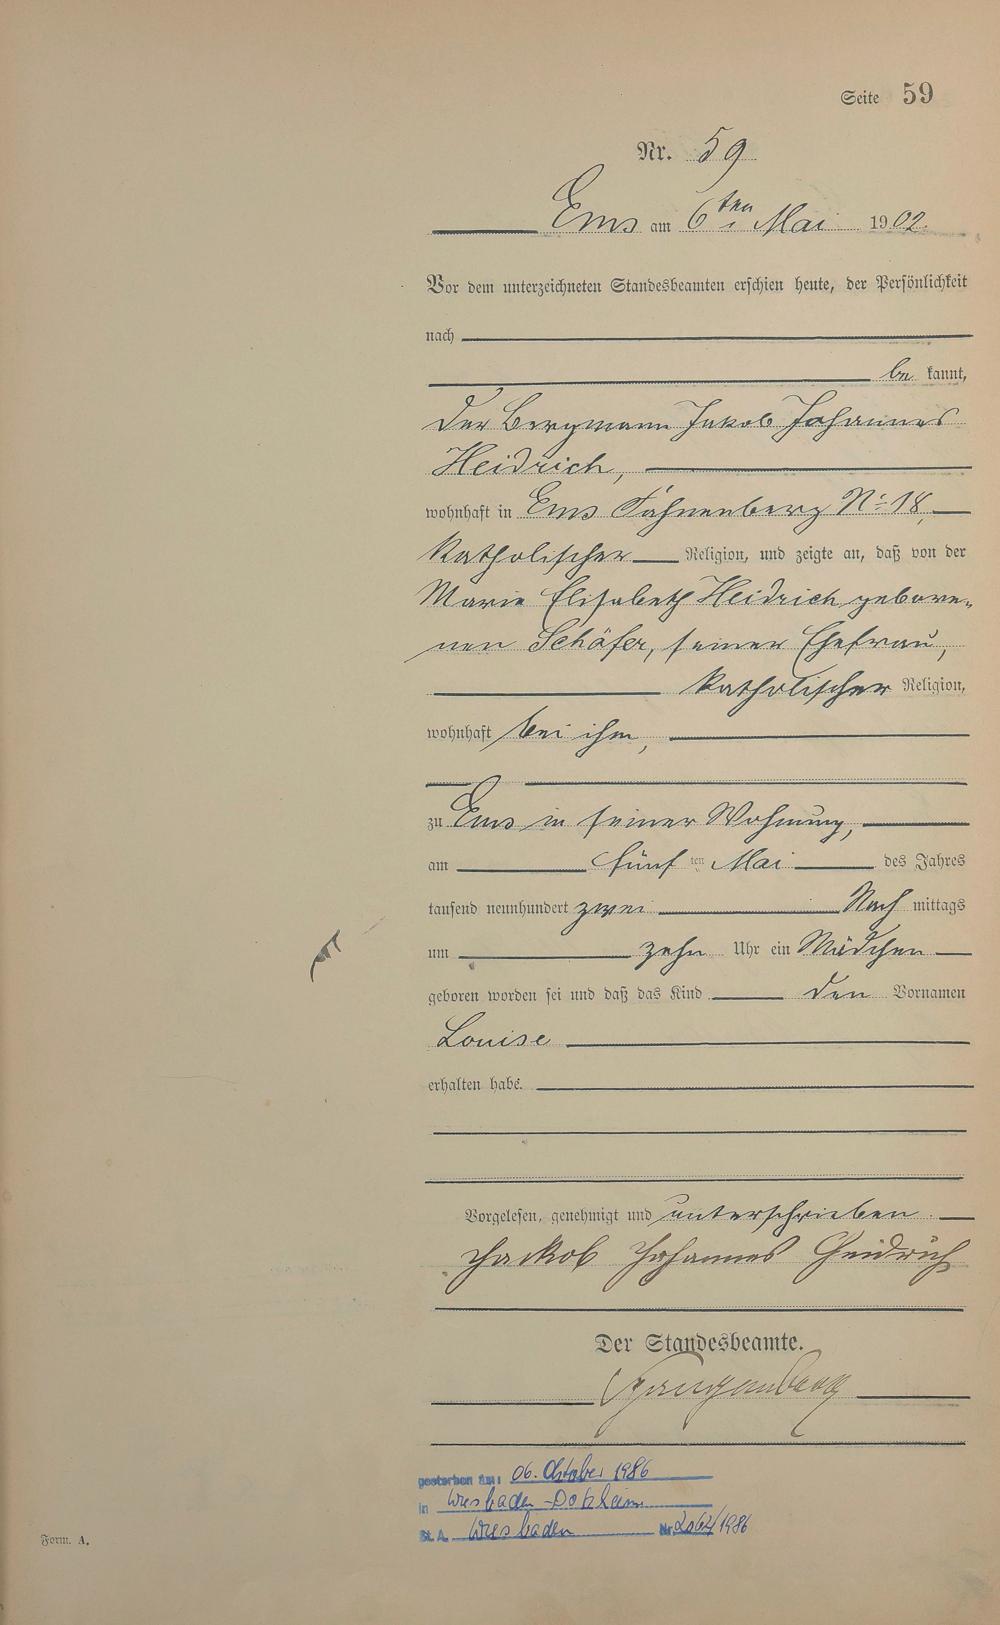 Seite 59
Nr. 59
Ems am 6ten Mai 1902.
Vor dem unterzeichneten Standesbeamten erschien heute, der Persönlichkeit
nach
be kannt,
der Bergmann Jakob Johannes
Heidrich,
wohnhaft in Ems Fahnenberg No 18,
katholischer Religion, und zeigte an, daß von der
Marie Elisabeth Heidrich gebore-
nen Schäfer, seiner Ehefrau,
katholischer Religion,
wohnhaft bei ihm,
zu Ems in seiner Wohnung,
am fünf ten Mai des Jahres
tausend neunhundert zwei Nach mittags
um zehn Uhr ein Mädchen
geboren worden sei und daß das Kind den Vornamen
Louise
erhalten habe.
Vorgelesen, genehmigt und unterschrieben.
Jackob Johannes Heidrich
Der Standesbeamte.
gestorben am: 06. Oktober 1986
in Wiesbaden-Dotzheim
St. A. Wiesbaden Nr. 2064/1986
Form. A.